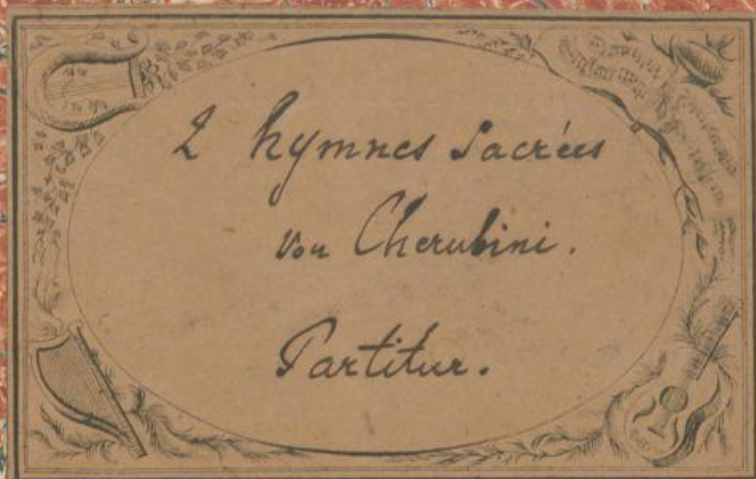 2 hymnes sacrées
von Cherubini.
Partitur.